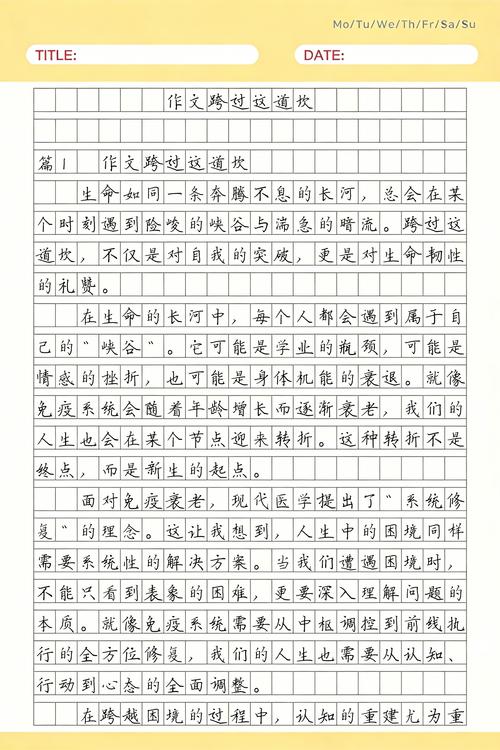 Mo/Tu/We/Th/Fr/Sa/Su
TITLE: DATE:
作文跨过这道坎
篇1 作文跨过这道坎
生命如同一条奔腾不息的长河，总会在某
个时刻遇到险峻的峡谷与湍急的暗流。跨过这
道坎，不仅是对自我的突破，更是对生命韧性
的礼赞。
在生命的长河中，每个人都会遇到属于自
己的“峡谷”。它可能是学业的瓶颈，可能是
情感的挫折，也可能是身体机能的衰退。就像
免疫系统会随着年龄增长而逐渐衰老，我们的
人生也会在某个节点迎来转折。这种转折不是
终点，而是新生的起点。
面对免疫衰老，现代医学提出了“系统修
复”的理念。这让我想到，人生中的困境同样
需要系统性的解决方案。当我们遭遇困境时，
不能只看到表象的困难，更要深入理解问题的
本质。就像免疫系统需要从中枢调控到前线执
行的全方位修复，我们的人生也需要从认知、
行动到心态的全面调整。
在跨越困境的过程中，认知的重建尤为重